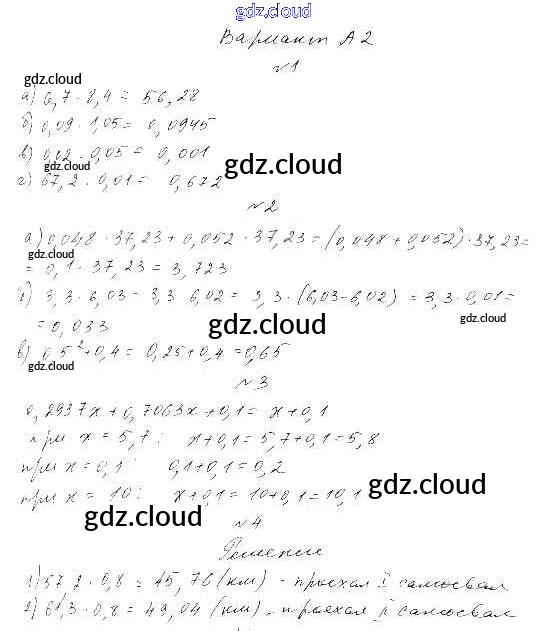 gdz.cloud
Вариант А2
№1
gdz.cloud
а) 6,7 · 8,4 = 56,28
б) 0,09 · 1,05 = 0,0945
в) 0,02 · 0,05 = 0,001
gdz.cloud
gdz.cloud
г) 67,2 · 0,01 = 0,672
№2
а) 0,048 · 37,23 + 0,052 · 37,23 = (0,048 + 0,052) · 37,23 =
gdz.cloud
= 0,1 · 37,23 = 3,723
б) 3,3 · 6,03 - 3,3 · 6,02 = 3,3 · (6,03 - 6,02) = 3,3 · 0,01 =
gdz.cloud
gdz.cloud
= 0,033
в) 0,5² + 0,4 = 0,25 + 0,4 = 0,65
gdz.cloud
№3
0,2937x + 0,7063x + 0,1 = x + 0,1
при x = 5,7: x + 0,1 = 5,7 + 0,1 = 5,8
при x = 0,1: 0,1 + 0,1 = 0,2
при x = 10: x + 0,1 = 10 + 0,1 = 10,1
gdz.cloud
gdz.cloud
№4
Решение
1) 57,2 · 0,8 = 45,76 (км) - проехал I самосвал
2) 61,3 · 0,8 = 49,04 (км) - проехал II самосвал